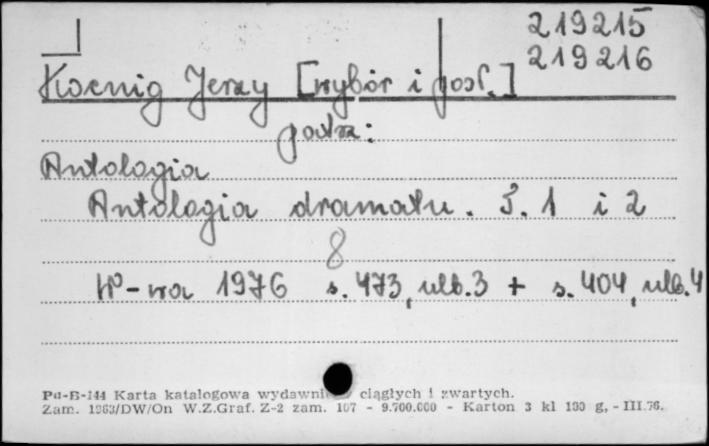 219215
219216
Koenig Jerzy [wybór i posł.]
patrz:
Antologia
Antologia dramatu. T. 1 i 2
8
W-wa 1976 s. 473, nlb. 3 + s. 404, nlb. 4
Pu-B-144 Karta katalogowa wydawni ciągłych i zwartych.
Zam. 1963/DW/On W.Z.Graf. Z-2 zam. 107 - 9.700.000 - Karton 3 kl 190 g, - III.76.